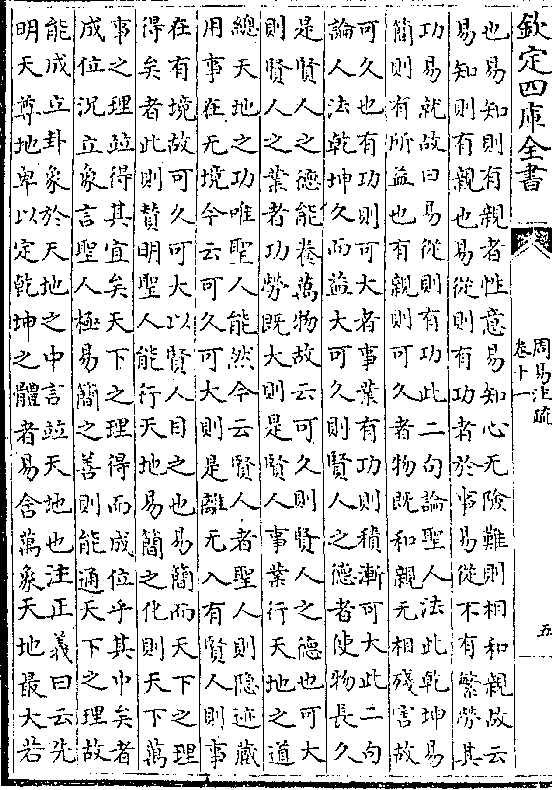 欽定四庫全書
周易注疏
卷十一
五
也易知則有親者性意易知心无險難則相和親故云
易知則有親也易從則有功者於事易從不有繁勞其
功易就故曰易從則有功此二句論聖人法此乾坤易
簡則有所益也有親則可久者物既和親无相殘害故
可久也有功則可大者事業有功則積漸可大此二句
論人法乾坤久而益大可久則賢人之德者使物長久
是賢人之德能養萬物故云可久則賢人之德也可大
則賢人之業者功勞既大則是賢人事業行天地之道
總天地之功唯聖人能然今云賢人者聖人則隱迹藏
用事在无境今云可久可大則是離无入有賢人則事
在有境故可久可大以賢人目之也易簡而天下之理
得矣者此則贊明聖人能行天地易簡之化則天下萬
事之理竝得其宜矣天下之理得而成位乎其中矣者
成位況立象言聖人極易簡之善則能通天下之理故
能成立卦象於天地之中言竝天地也注正義曰云先
明天尊地卑以定乾坤之體者易含萬象天地最大若